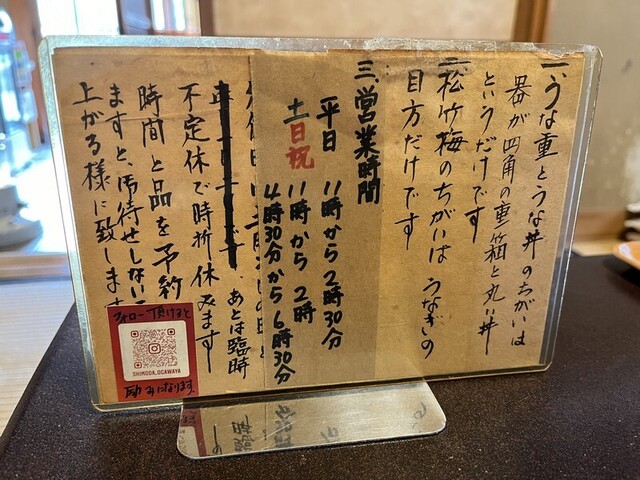 一、うな重とうな丼のちがいは
器が四角の重箱と丸い丼
というだけです
二、松竹梅のちがいは うなぎの
目方だけです
三、営業時間
平日 11時から2時30分
土日祝 11時から2時
4時30分から6時30分
あとは臨時
不定休で時折休みます
時間と品を予約
ますと、お待せしない
上がる様に致します
フォロー頂けると
SHIMODA.OGAWAYA
励みになります